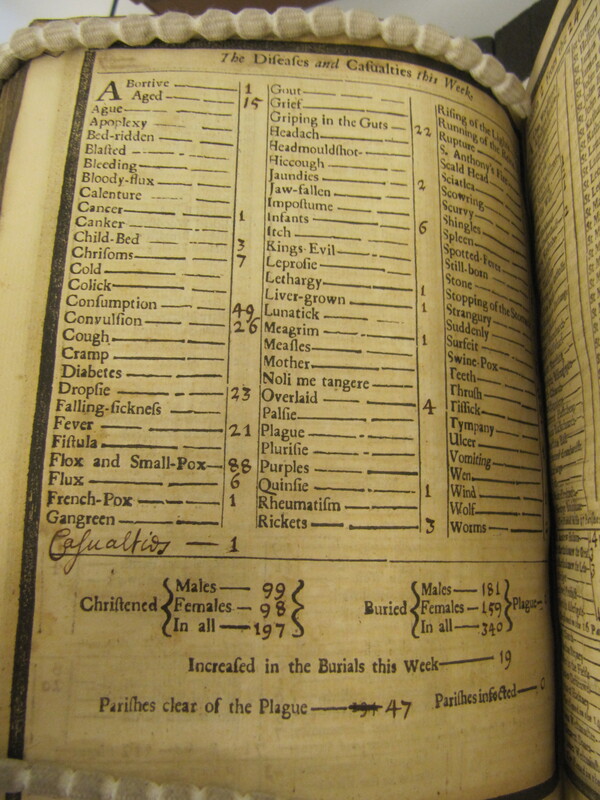 The Diseaſes and Caſualties this Week.
ABortive 1
Aged 15
Ague
Apoplexy
Bed-ridden
Blaſted
Bleeding
Bloody-flux
Calenture
Cancer 1
Canker
Child-Bed 3
Chriſoms 7
Cold
Colick
Conſumption 49
Convulſion 26
Cough
Cramp
Diabetes
Dropſie 23
Falling-ſickneſs
Fever 21
Fiſtula
Flox and Small-Pox 88
Flux 6
French-Pox 1
Gangreen
Caſualties 1
Gout
Grief
Griping in the Guts 22
Headach
Headmouldſhot
Hiccough
Jaundies 2
Jaw-fallen
Impoſtume
Infants 6
Itch
Kings-Evil
Leproſie
Lethargy 1
Liver-grown
Lunatick 1
Meagrim
Meaſles 1
Mother
Noli me tangere
Overlaid 4
Palſie
Plague
Pluriſie
Purples
Quinſie 1
Rheumatiſm
Rickets 3
Riſing of the
Running of the
Rupture
S. Anthony's
Scald Head
Sciatica
Scowring
Scurvy
Shingles
Spleen
Spotted-Fever
Still-born
Stone
Stopping of the
Strangury
Suddenly
Surfeit
Swine-Pox
Teeth
Thruſh
Tiſſick
Tympany
Ulcer
Vomiting
Wen
Wind
Wolf
Worms
Chriſtened { Males — 99 Females — 98 In all — 197 }
Buried { Males — 181 Females — 159 In all — 340 } Plague
Increaſed in the Burials this Week — 19
Pariſhes clear of the Plague — 47 Pariſhes infected — 0